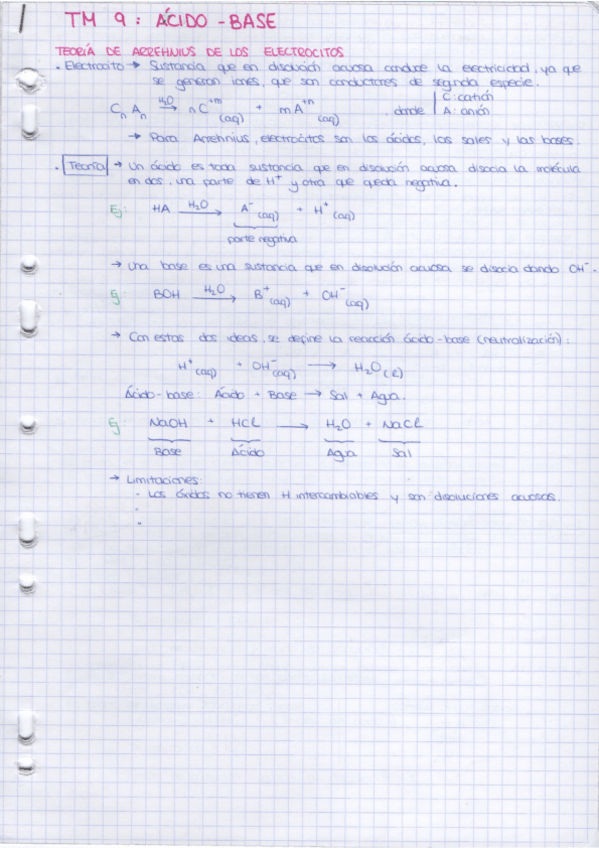 TM 9: ÁCIDO-BASE
TEORÍA DE ARREHNIUS DE LOS ELECTROCITOS
• Electrocito → Sustancia que en disolución acuosa conduce la electricidad, ya que
se generan iones, que son conductores de segunda especie.
CₙAₙ —H₂O→ nC⁺ᵐ(aq) + mA⁺ⁿ(aq) donde | C: catión
A: anión
→ Para Arrehnius, electrocitos son los ácidos, las sales y las bases.
• Teoría → Un ácido es toda sustancia que en disolución acuosa disocia la molécula
en dos, una parte de H⁺ y otra que queda negativa.
Ej: HA —H₂O→ A⁻(aq) + H⁺(aq)
parte negativa
→ Una base es una sustancia que en disolución acuosa se disocia dando OH⁻.
Ej: BOH —H₂O→ B⁺(aq) + OH⁻(aq)
→ Con estas dos ideas, se define la reacción ácido-base (neutralización):
H⁺(aq) + OH⁻(aq) → H₂O(l)
Ácido-base: Ácido + Base → Sal + Agua.
Ej: NaOH + HCl → H₂O + NaCl
Base Ácido Agua Sal
→ Limitaciones:
· Los óxidos no tienen H intercambiables y son disoluciones acuosas.
·
·